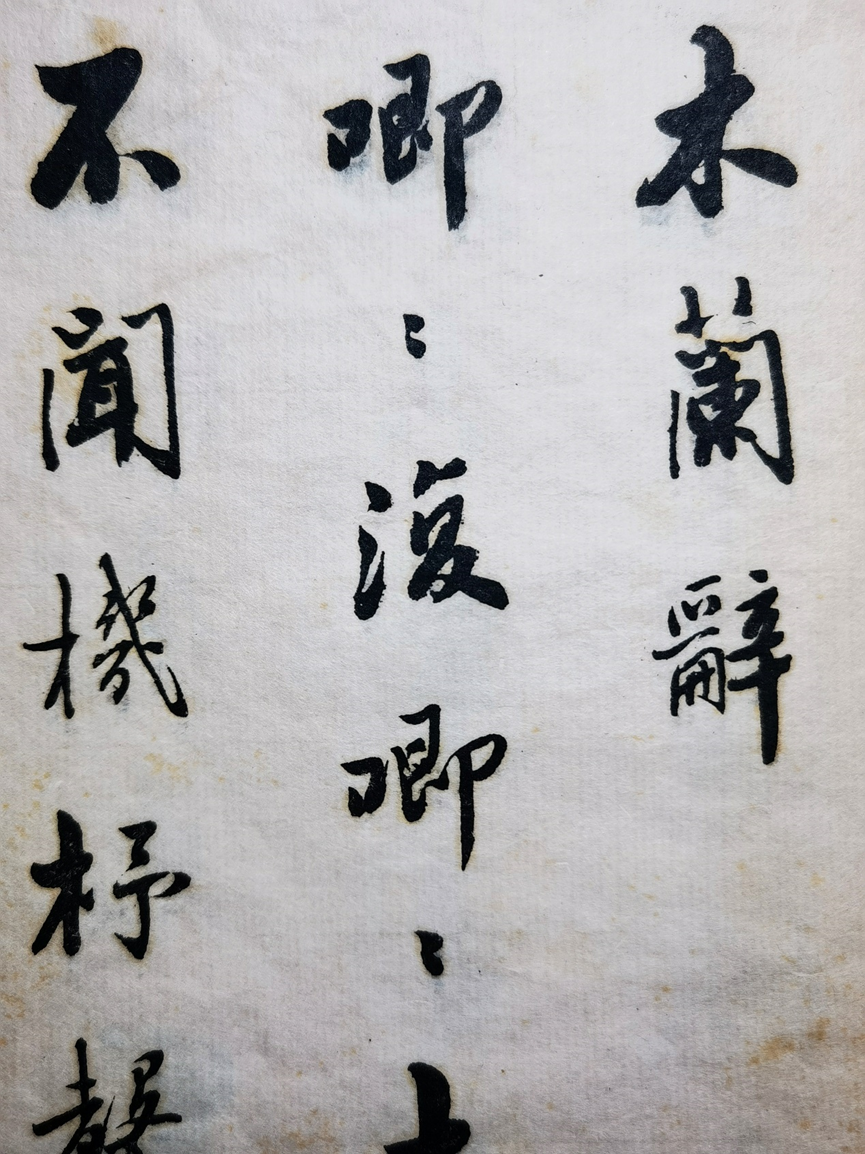 木蘭辭
唧〻復唧〻
不聞機杼聲